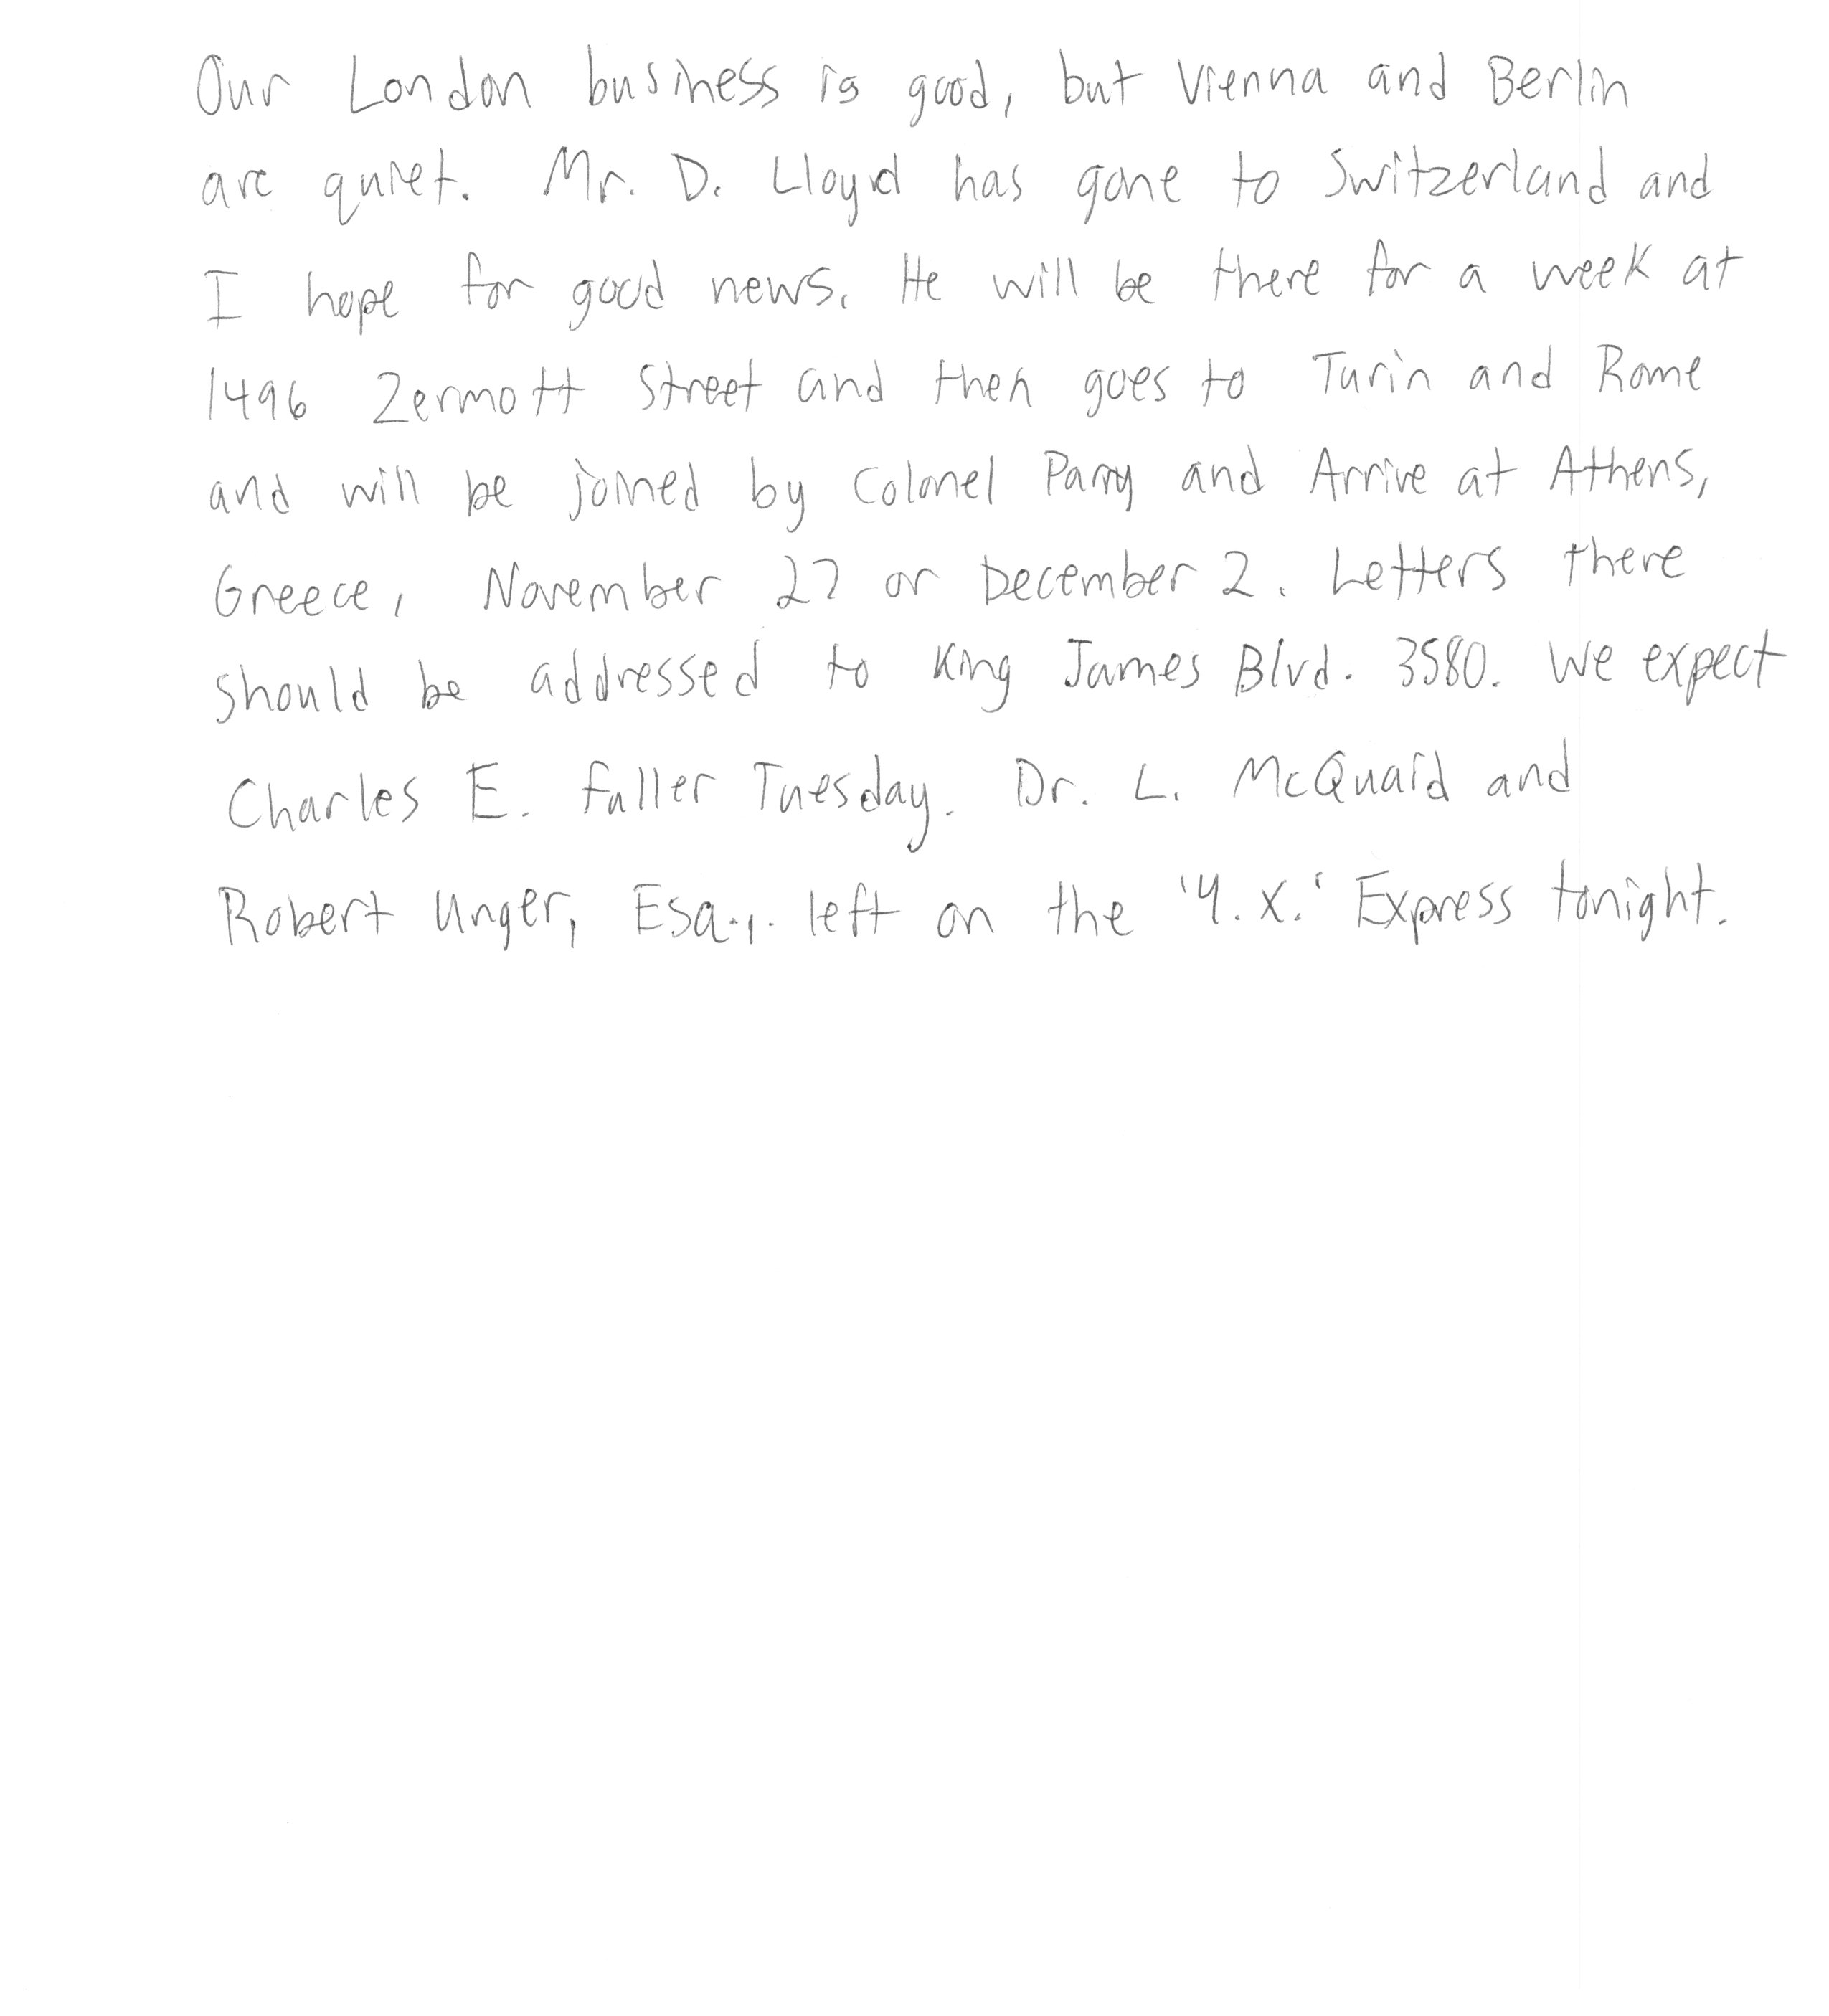 Our London business is good, but Vienna and Berlin
are quiet. Mr. D. Lloyd has gone to Switzerland and
I hope for good news. He will be there for a week at
1496 Zermott Street and then goes to Turin and Rome
and will be joined by Colonel Parry and Arrive at Athens,
Greece, November 27 or December 2. Letters there
should be addressed to King James Blvd. 3580. We expect
Charles E. Fuller Tuesday. Dr. L. McQuaid and
Robert Unger, Esq., left on the 'Y.X.' Express tonight.